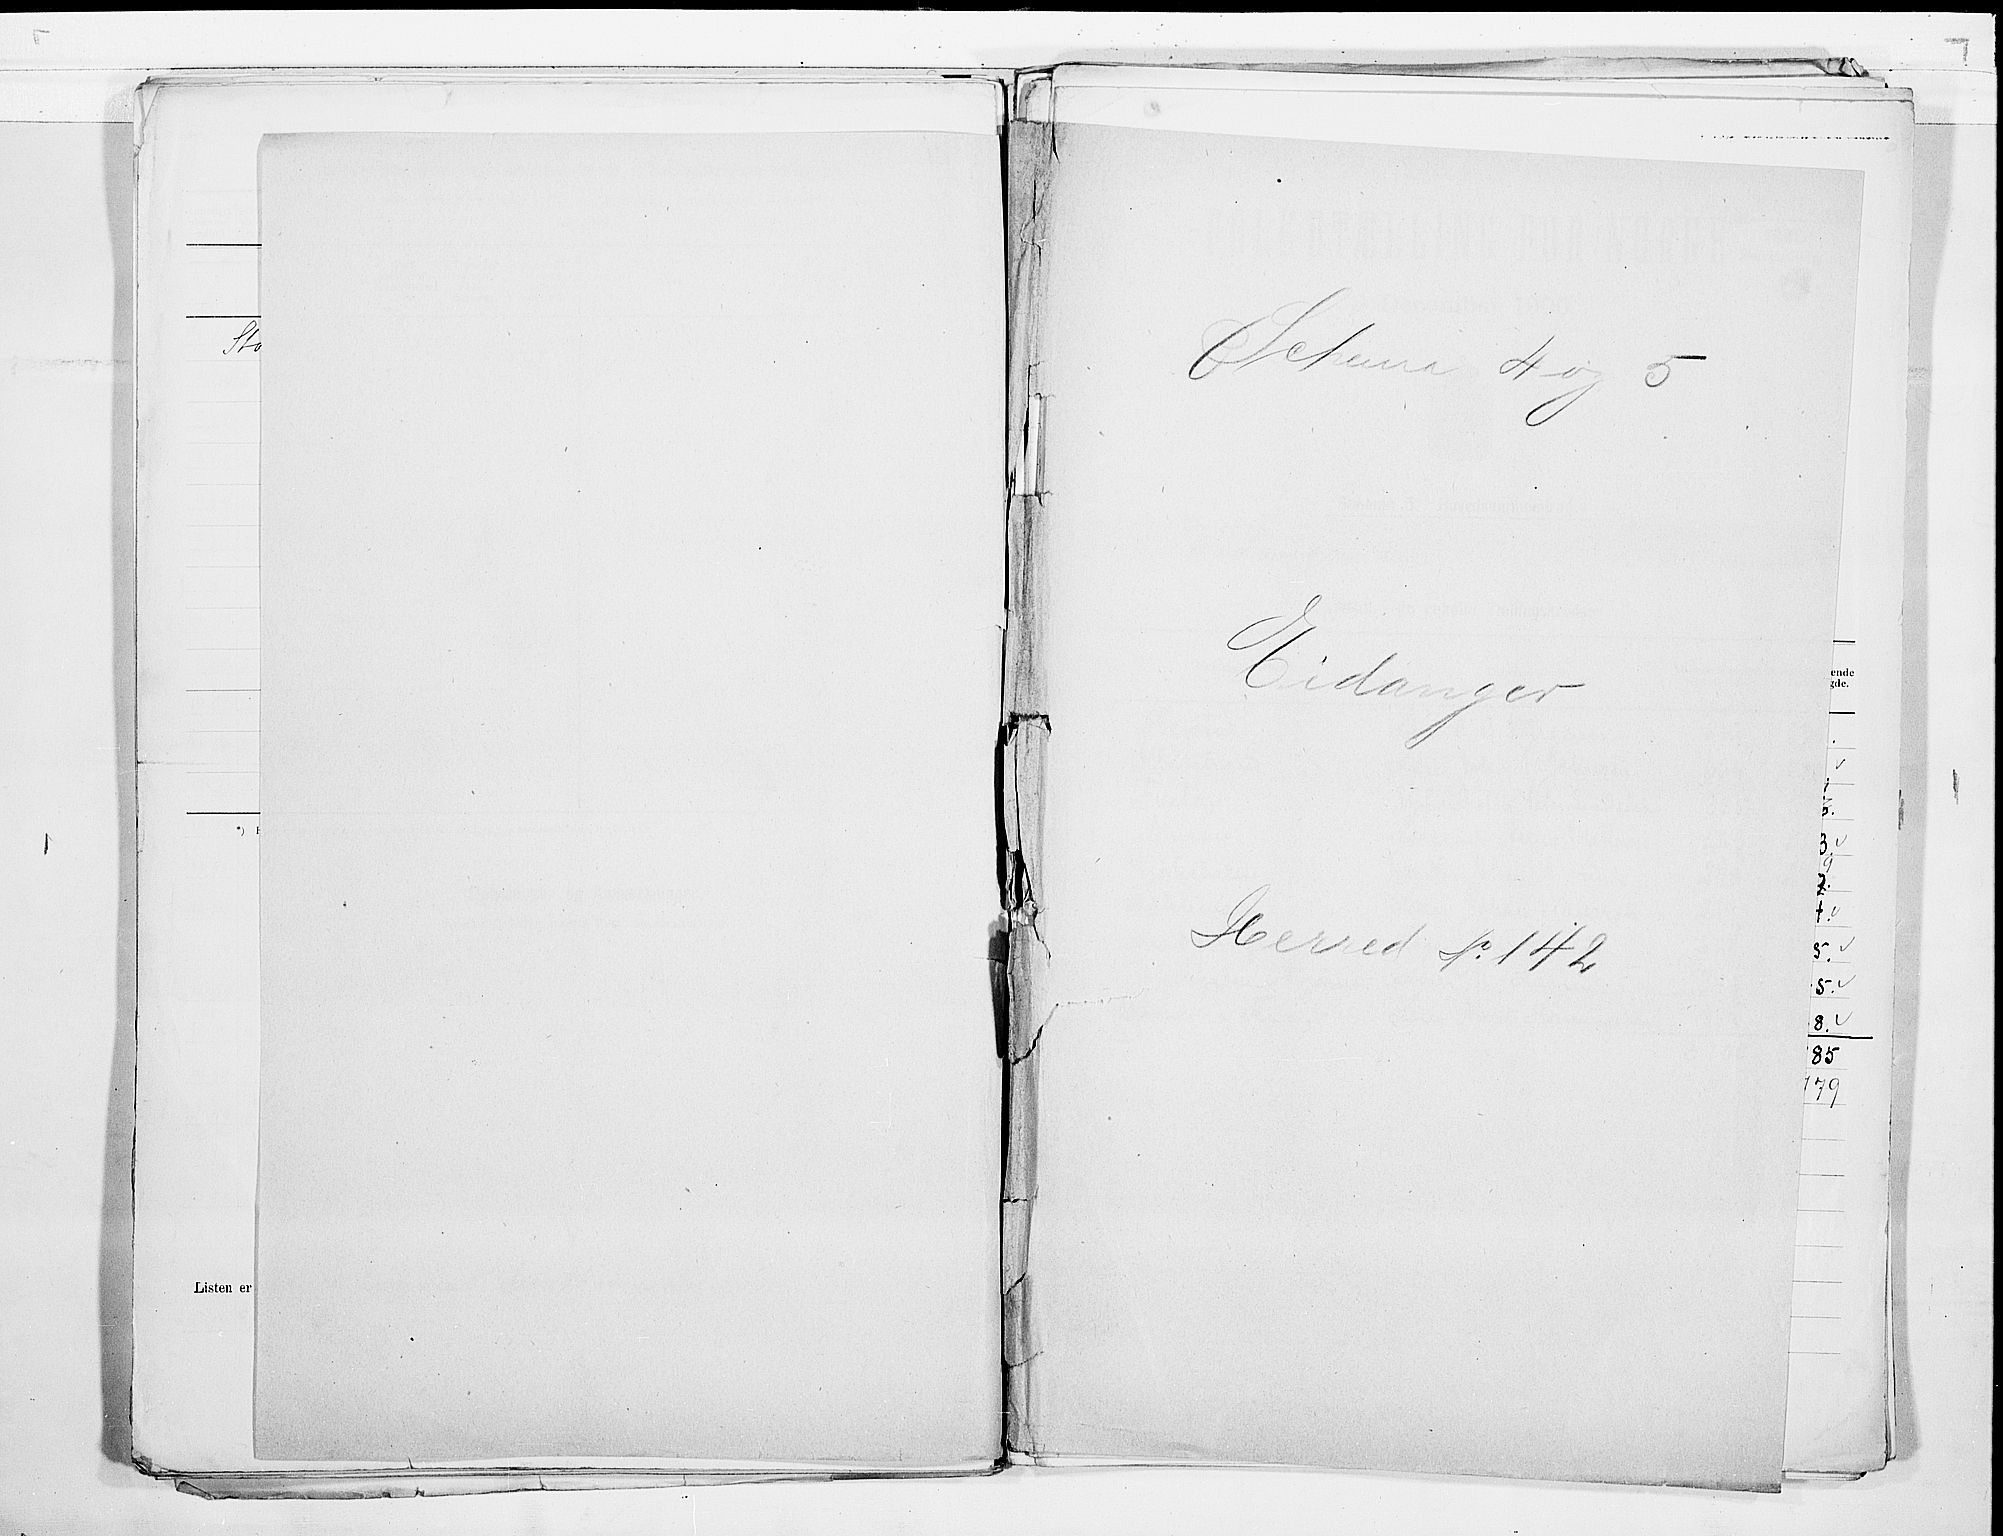 Sto
*)
Listen er
Schema 4 og 5
Eidanger
Herred No 142
ende
gde.
3.
5.
5.
8.
85
179